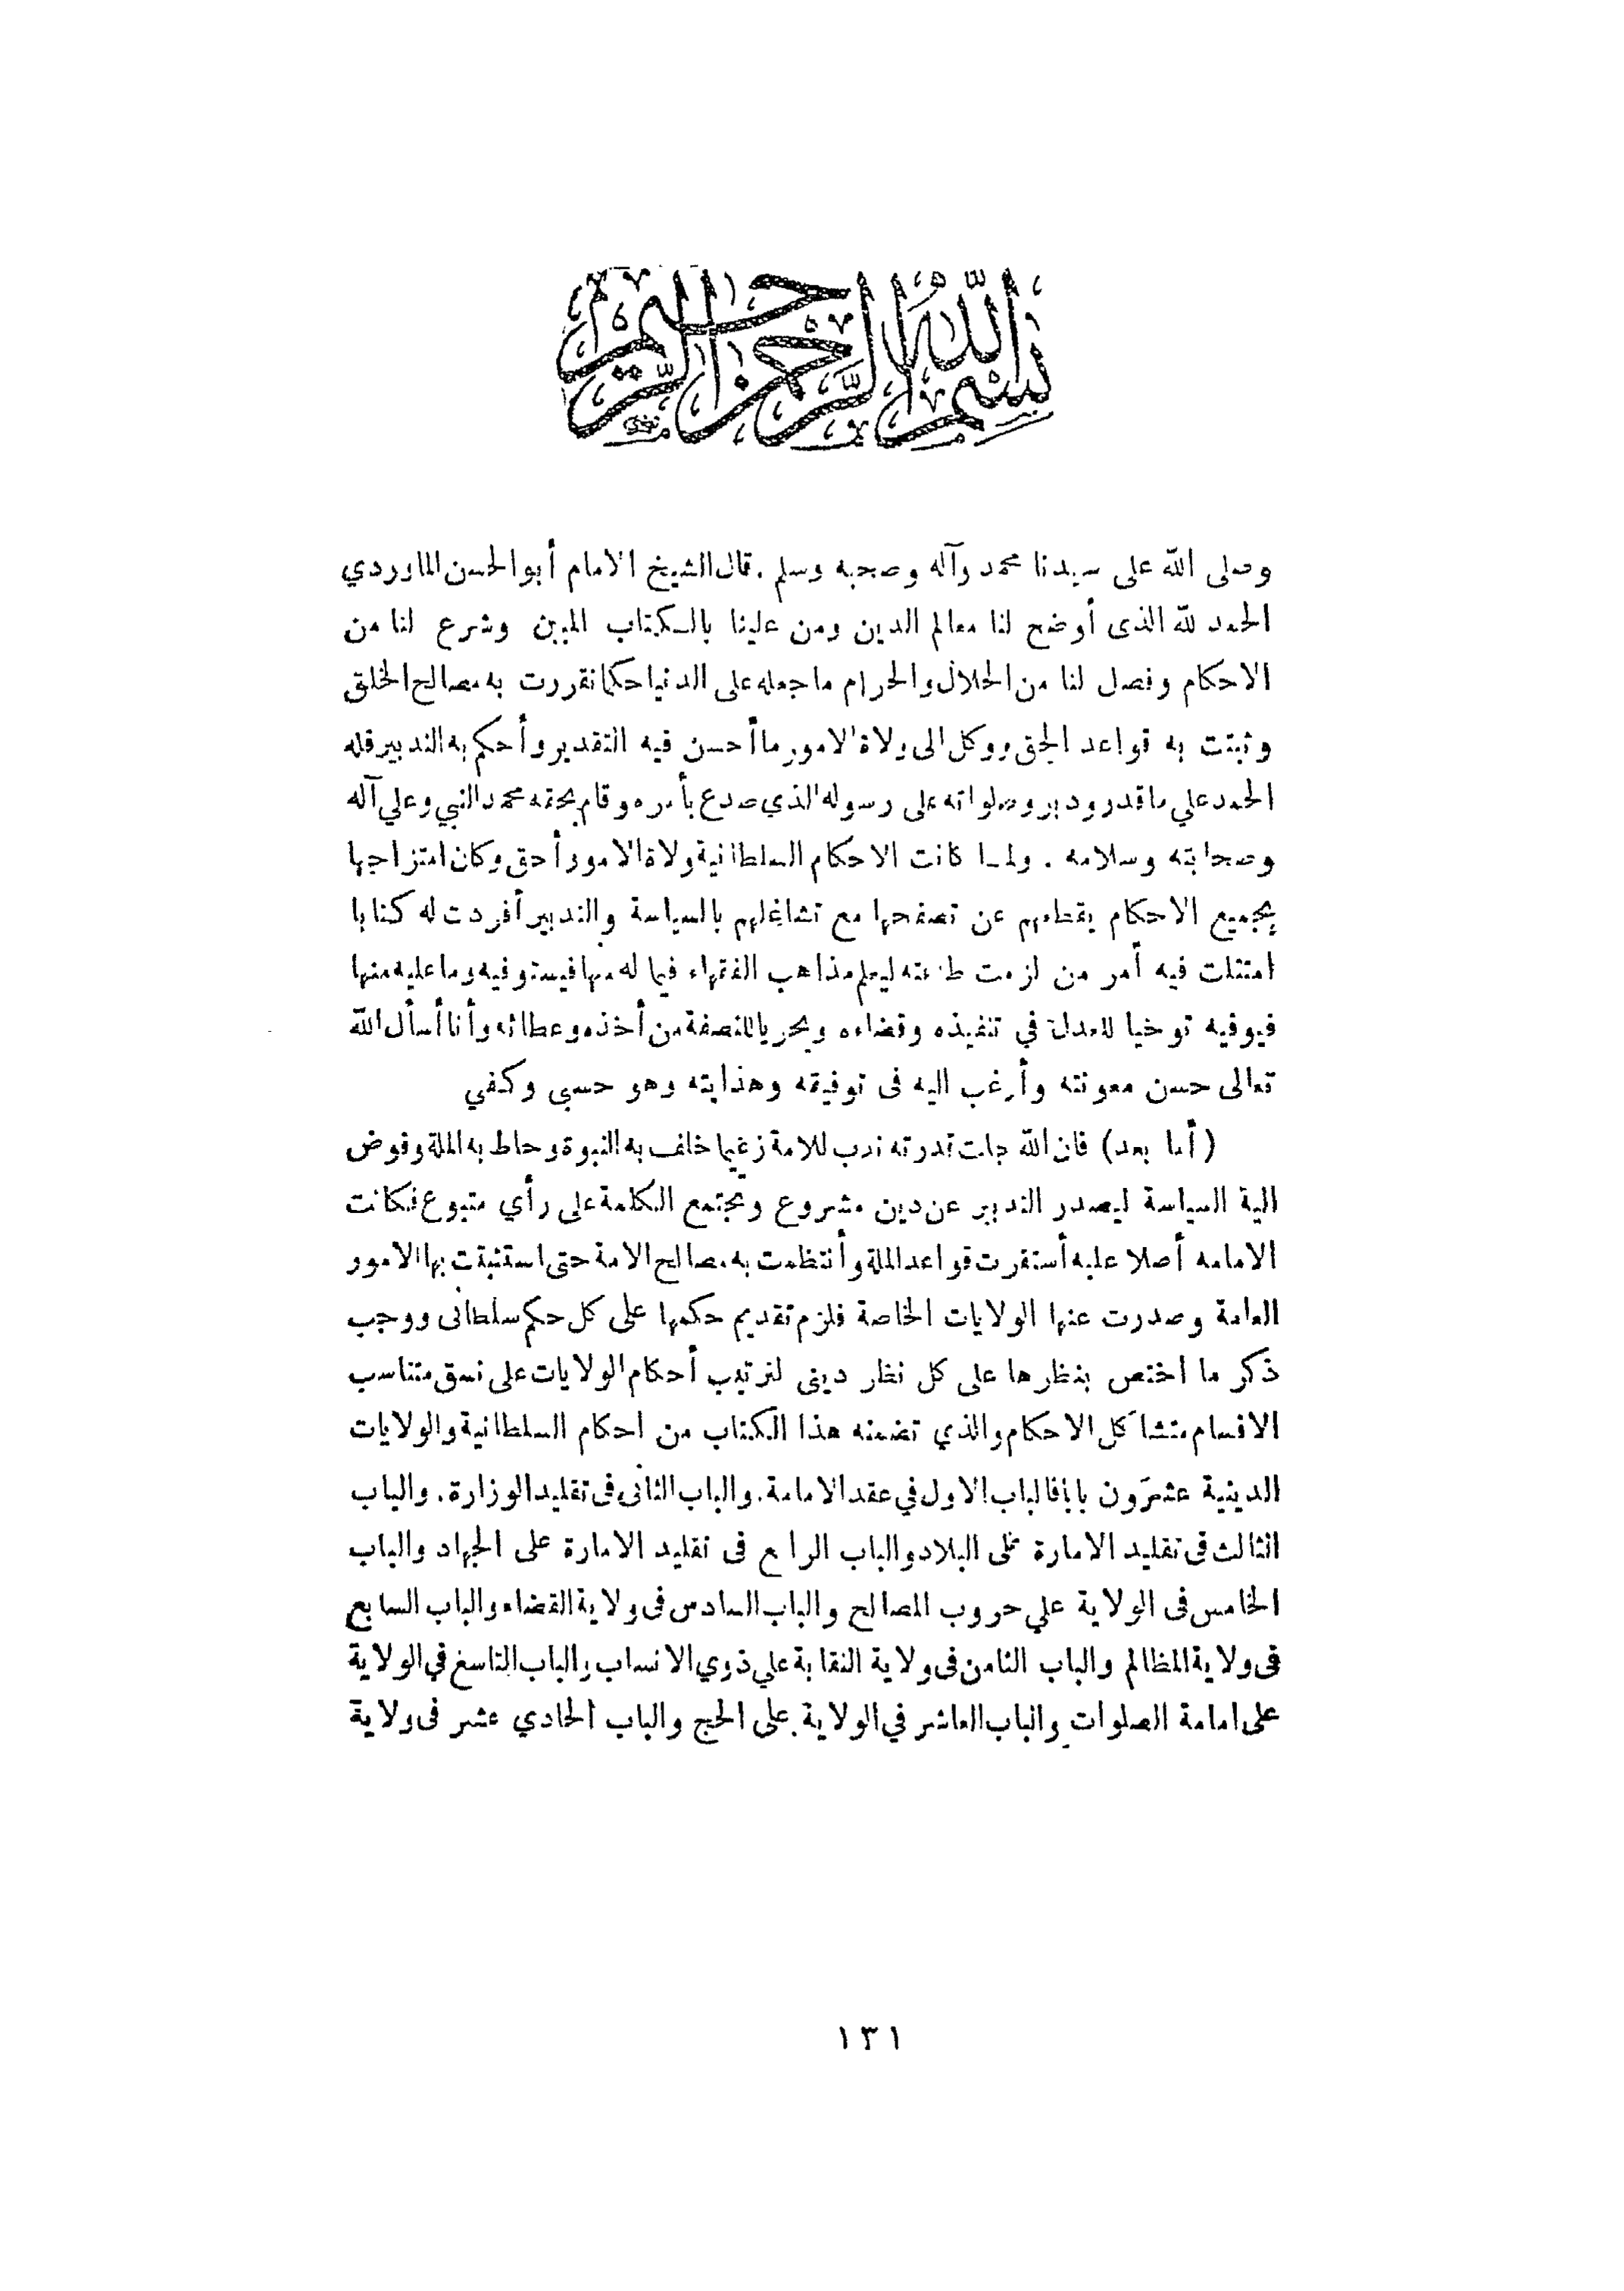 بسم الله الرحمن الرحيم
وصلى الله على سيدنا محمد وآله وصحبه وسلم . قال الشيخ الامام أبو الحسن الماوردي
الحمد لله الذى أوضح لنا معالم الدين ومن علينا بالكتاب المبين وشرع لنا من
الاحكام وفصل لنا من الحلال والحرام ما جعله على الدنيا حكما تقررت به مصالح الخلق
وثبتت به قواعد الحق ووكل الى ولاة الامور ما أحسن فيه التقدير وأحكم به التدبير فله
الحمد علي ما قدر ودبر وصلواته على رسوله الذي صدع بأمره وقام بحقه محمد النبي وعلي آله
وصحابته وسلامه . ولما كانت الاحكام السلطانية ولاة الامور أحق وكان امتزاجها
بجميع الاحكام يقطعهم عن تصفحها مع تشاغلهم بالسياسة والتدبير أفردت له كتابا
امتثلت فيه أمر من لزمت طاعته ليعلم مذاهب الفقهاء فيما له منها فيستوفيه وما عليه منها
فيوفيه توخيا للعدل في تنفيذه وقضاءه وتحريا للنصفة من أخذه وعطائه وأنا أسأل الله
تعالى حسن معونته وأرغب اليه فى توفيقه وهذايته وهو حسبى وكفي
(أما بعد) فان الله جلت قدرته ندب للامة زعيما خلف به النبوة وحاط به الملة وفوض
الية السياسة ليصدر التدبير عن دين مشروع وتجتمع الكلمة على رأي متبوع فكانت
الامامه أصلا عليه أستقرت قواعد الملة وأنتظمت به مصالح الامة حتى استثبتت بها الامور
العامة وصدرت عنها الولايات الخاصة فلزم تقديم حكمها على كل حكم سلطانى ووجب
ذكر ما اختص بنظرها على كل نظر دينى لترتيب أحكام الولايات على نسق متناسب
الاقسام متشاكل الاحكام والذي تضمنه هذا الكتاب من احكام السلطانية والولايات
الدينية عشرون بابا فالباب الاول في عقد الامامة . والباب الثانى فى تقليد الوزارة . والباب
الثالث فى تقليد الامارة على البلاد والباب الرابع فى تقليد الامارة على الجهاد والباب
الخامس فى الولاية علي حروب المصالح والباب السادس فى ولاية القضاء والباب السابع
فى ولاية المظالم والباب الثامن فى ولاية النقابة علي ذوي الانساب والباب التاسغ في الولاية
على امامة الصلوات والباب العاشر في الولاية على الحج والباب الحادي عشر فى ولاية
١٣١